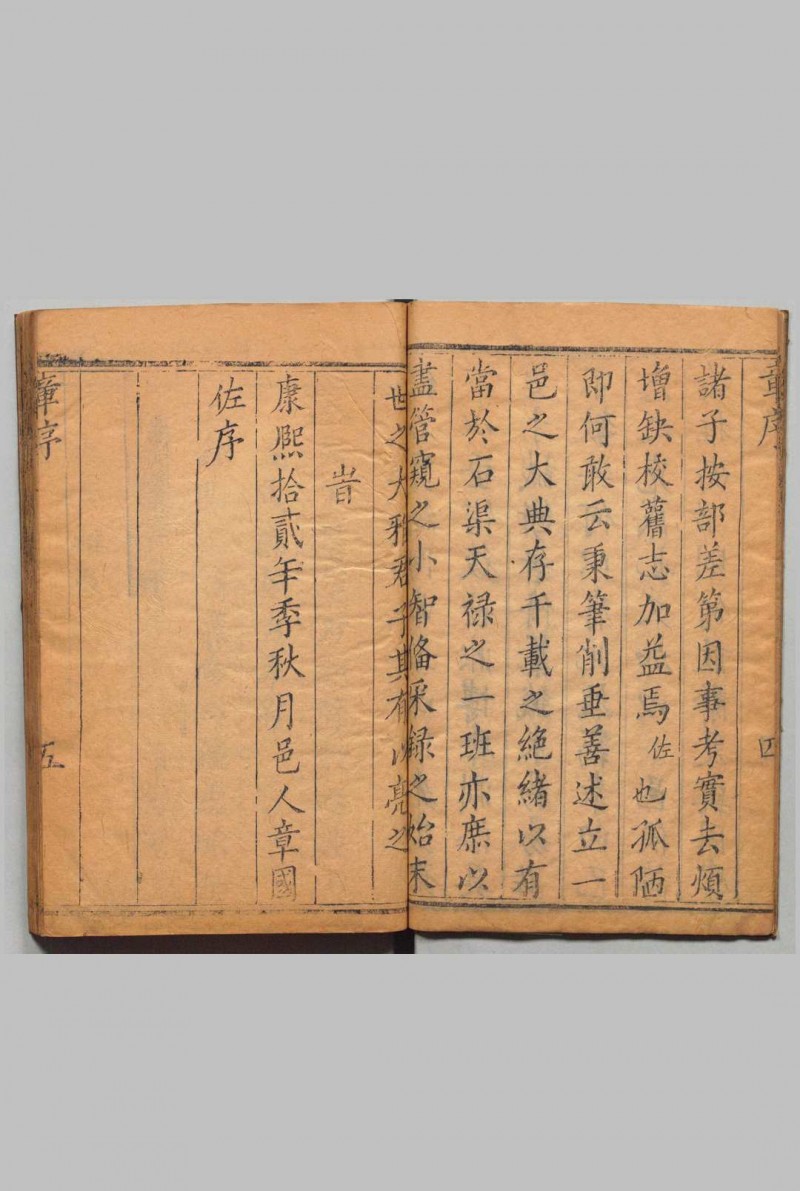 章序
四
諸子按部差第因事考實去煩
增缺校舊志加益焉佐也孤陋
即何敢云秉筆削垂善述立一
邑之大典存千載之絶緒以有
當於石渠天禄之一班亦庶以
盡管窺之小智偹采録之始末
世之大雅君子其有以亮之
旹
康熙拾貳年季秋月邑人章國
佐序
章序
五